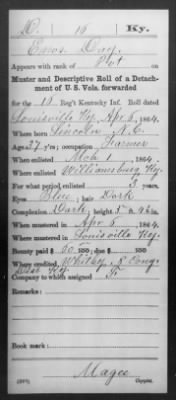 D. 16 Ky.
Enos Day
Appears with rank of Pvt on
Muster and Descriptive Roll of a Detach-
ment of U. S. Vols. forwarded
for the 15 Reg't Kentucky Inf. Roll dated
Louisville Ky. Apr. 6, 1864.
Where born Lincoln, N.C.
Age 27 y'rs; occupation Farmer
When enlisted Mch 1, 1864.
Where enlisted Williamsburg Ky.
For what period enlisted 3 years.
Eyes Blue; hair Dark
Complexion Dark; height 5 ft. in.
When mustered in Apr 6, 1864.
Where mustered in Louisville Ky.
Bounty paid $ 60 100; due $ 100
Where credited Whitley, 8 Cong
Dist Ky.
Company to which assigned
Remarks:
Book mark:
Magee
Copyist.